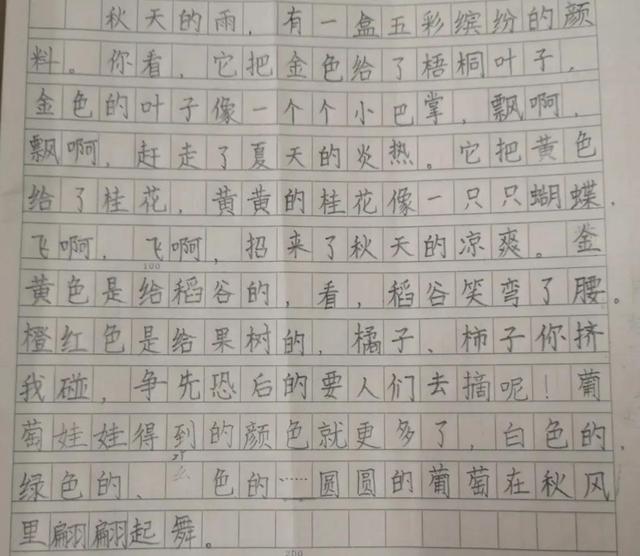 秋天的雨，有一盒五彩缤纷的颜
料。你看，它把金色给了梧桐叶子，
金色的叶子像一个个小巴掌，飘啊，
飘啊，赶走了夏天的炎热。它把黄色
给了桂花，黄黄的桂花像一只只蝴蝶，
飞啊，飞啊，招来了秋天的凉爽。金
100
黄色是给稻谷的，看，稻谷笑弯了腰。
橙红色是给果树的，橘子、柿子你挤
我碰，争先恐后的要人们去摘呢！葡
萄娃娃得到的颜色就更多了，白色的、
绿色的、色的……圆圆的葡萄在秋风
里翩翩起舞。
200